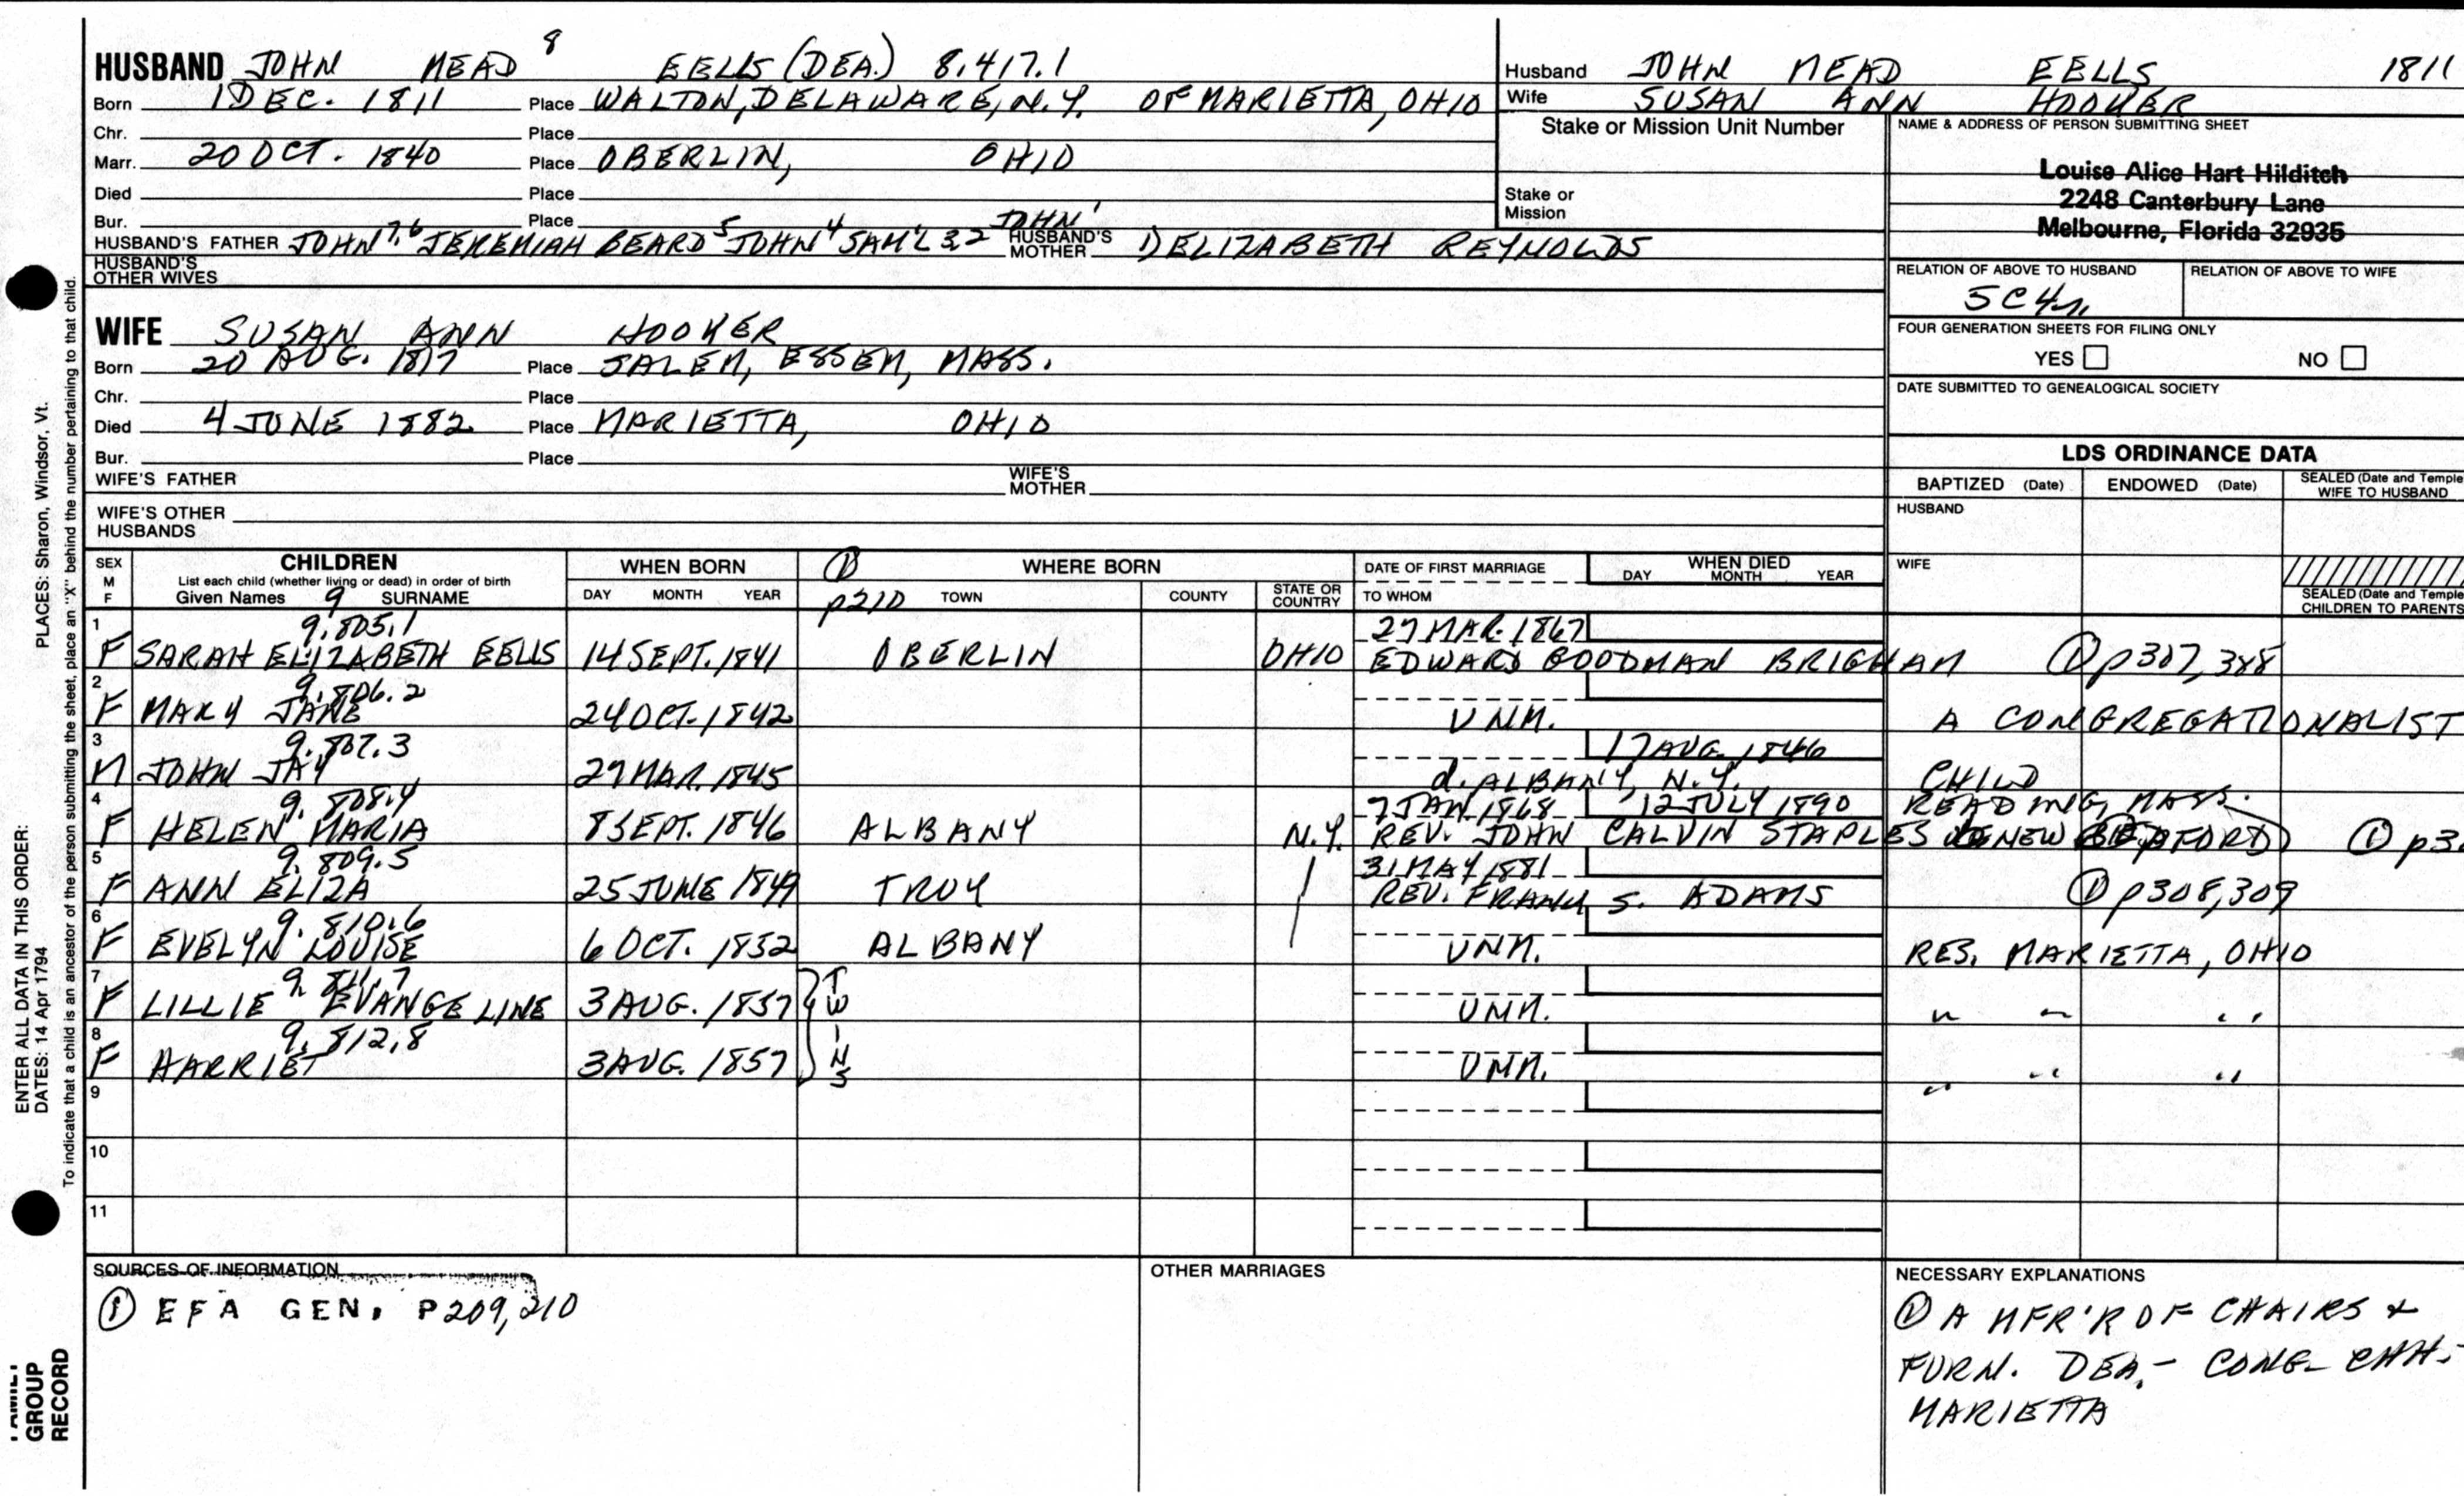 HUSBAND JOHN MEAD 8 EELLS (DEA.) 8.417.1
Born 1 DEC. 1811 Place WALTON, DELAWARE, N.Y. OF MARIETTA, OHIO
Chr. Place
Marr. 20 OCT. 1840 Place OBERLIN, OHIO
Died Place
Bur. Place
HUSBAND'S FATHER JOHN 7,6 JEREMIAH BEARD 5 JOHN 4 SAM'L 3,2 JOHN 1 HUSBAND'S MOTHER 1) ELIZABETH REYNOLDS
HUSBAND'S OTHER WIVES
Husband JOHN MEAD EELLS 1811
Wife SUSAN ANN HOOKER
Stake or Mission Unit Number
Stake or Mission
NAME & ADDRESS OF PERSON SUBMITTING SHEET
Louise Alice Hart Hilditch
2248 Canterbury Lane
Melbourne, Florida 32935
RELATION OF ABOVE TO HUSBAND RELATION OF ABOVE TO WIFE
5C4r
FOUR GENERATION SHEETS FOR FILING ONLY
YES NO
DATE SUBMITTED TO GENEALOGICAL SOCIETY
WIFE SUSAN ANN HOOKER
Born 20 AUG. 1817 Place SALEM, ESSEX, MASS.
Chr. Place
Died 4 JUNE 1882 Place MARIETTA, OHIO
Bur. Place
WIFE'S FATHER WIFE'S MOTHER
WIFE'S OTHER HUSBANDS
LDS ORDINANCE DATA
BAPTIZED (Date) ENDOWED (Date) SEALED (Date and Temple
WIFE TO HUSBAND
HUSBAND
WIFE
SEALED (Date and Temple
CHILDREN TO PARENTS
SEX M F CHILDREN
List each child (whether living or dead) in order of birth
Given Names 9 SURNAME
WHEN BORN
DAY MONTH YEAR
① p210 WHERE BORN
TOWN COUNTY STATE OR COUNTRY
DATE OF FIRST MARRIAGE
TO WHOM
WHEN DIED
DAY MONTH YEAR
1 9.805.1 27 MAR. 1867
F SARAH ELIZABETH EELLS 14 SEPT. 1841 OBERLIN OHIO EDWARD GOODMAN BRIGHAM ① p307, 388
2 9.806.2
F MARY JANE 24 OCT. 1842 UNM. A CONGREGATIONALIST
3 9.807.3 17 AUG. 1846
M JOHN JAY 29 MAR. 1845 d. ALBANY, N.Y. CHILD
4 9.808.4 7 JAN 1868 12 JULY 1890 READING, MASS.
F HELEN MARIA 8 SEPT. 1846 ALBANY N.Y. REV. JOHN CALVIN STAPLES NEW BEDFORD ① p3
5 9.809.5 31 MAY 1881
F ANN ELIZA 25 JUNE 1849 TROY REV. FRANK S. ADAMS ① p308, 309
6 9.810.6
F EVELYN LOUISE 6 OCT. 1852 ALBANY UNM. RES. MARIETTA, OHIO
7 9.811.7
F LILLIE EVANGELINE 3 AUG. 1857 TWINS UNM. " " "
8 9.812.8
F HARRIET 3 AUG. 1857 UNM. " " "
9
10
11
SOURCES OF INFORMATION
① EFA GEN. P209, 210
OTHER MARRIAGES
NECESSARY EXPLANATIONS
① A MFR'R OF CHAIRS &
FURN. DEA. - CONG. CHH.
MARIETTA
ENTER ALL DATA IN THIS ORDER:
DATES: 14 Apr 1794 PLACES: Sharon, Windsor, Vt.
To indicate that a child is an ancestor of the person submitting the sheet, place an "X" behind the number pertaining to that child.
FAMILY
GROUP
RECORD